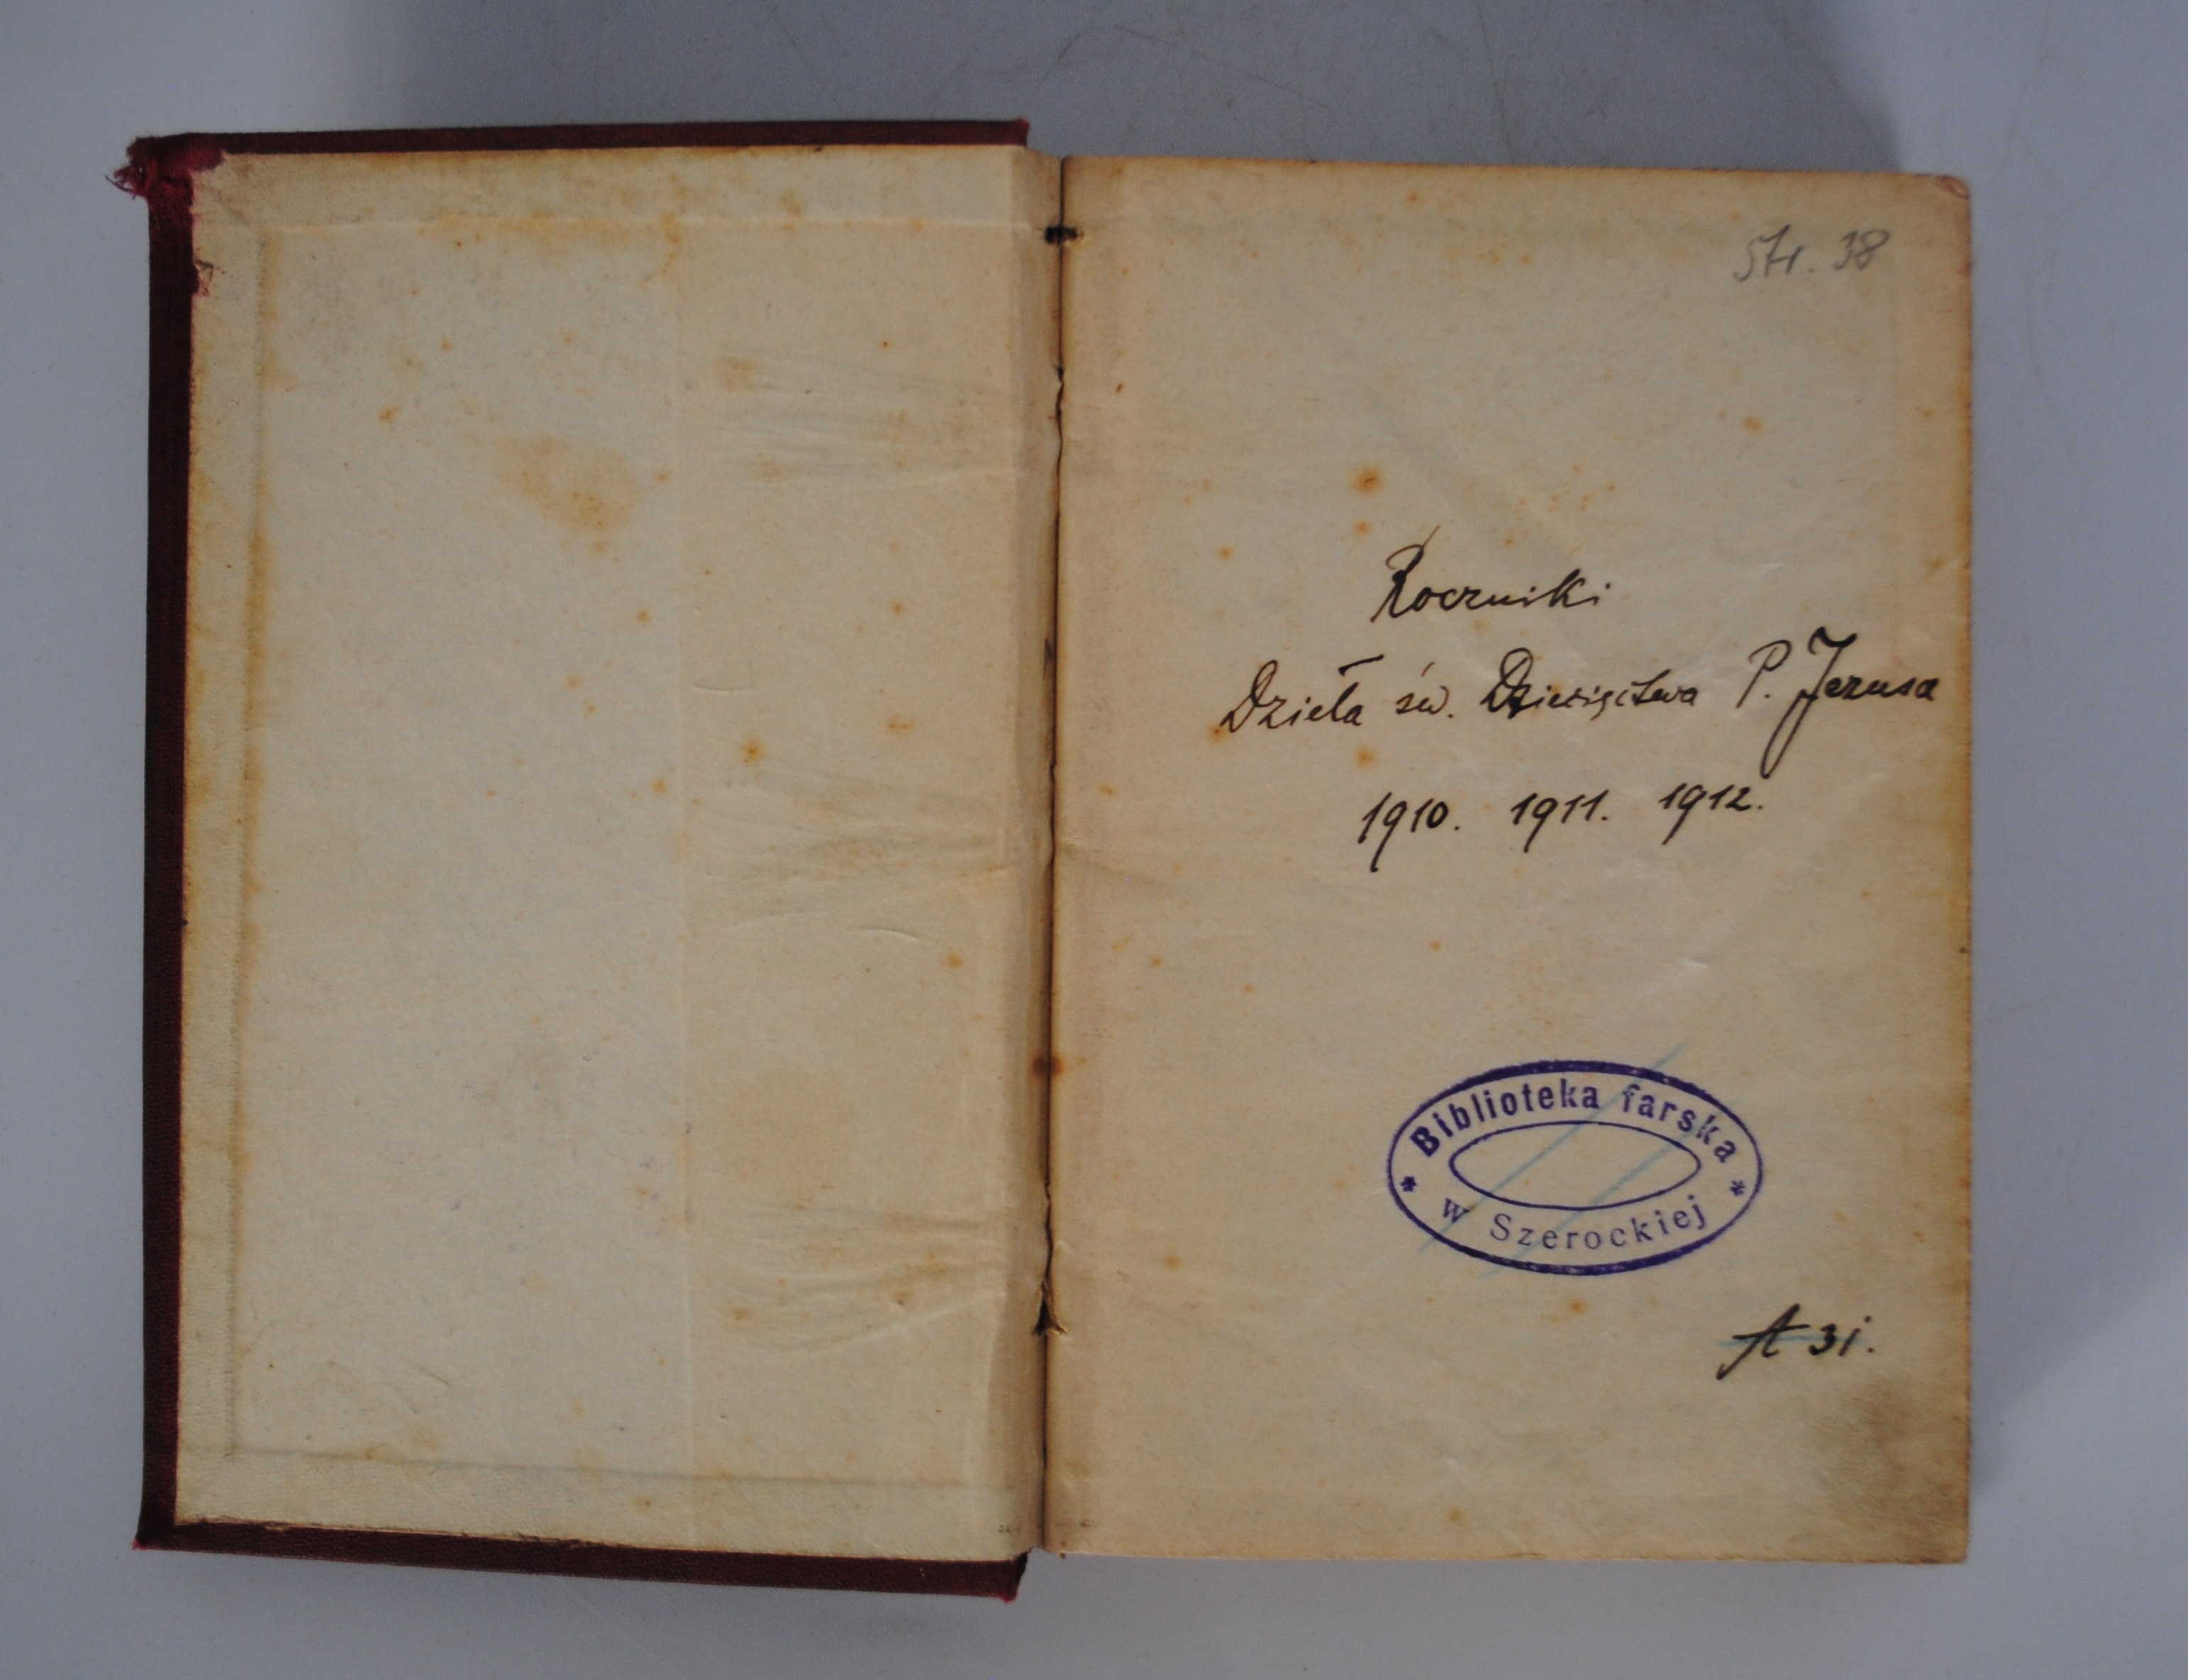 Str. 38
Roczniki
Dzieła św. Dziecięctwa P. Jezusa
1910. 1911. 1912.
* Biblioteka farska *
w Szerockiej
A 31.